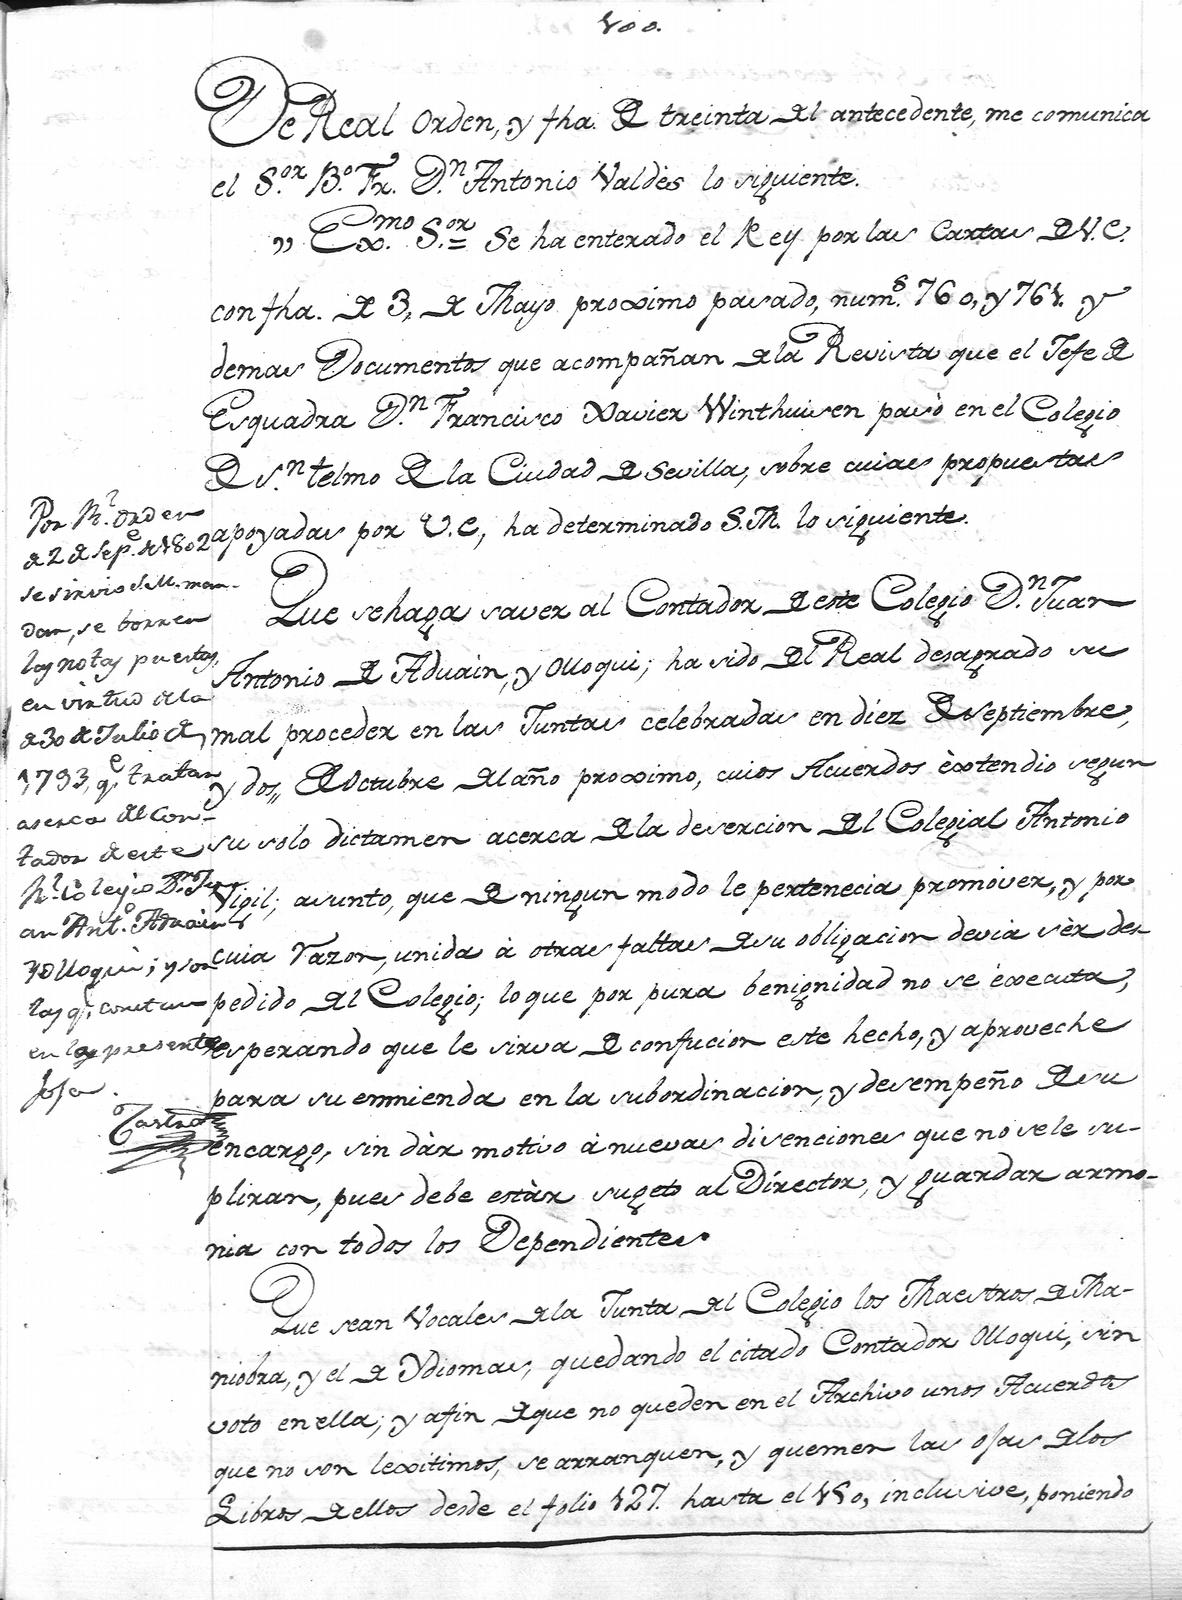 100.
De Real Orden, y fha. de treinta del antecedente, me comunica
el S.or B.o Fr. D.n Antonio Valdès lo siguiente.
„ Ex.mo S.or = Se ha enterado el Rey por las Cartas de V. E.
con fha. de 3, de Mayo proximo pasado, num.s 760, y 761. y
demas Documentos que acompañan dela Revista que el Jefe de
Esquadra D.n Francisco Xavier Winthuisen pasò en el Colegio
de S.n telmo de la Ciudad de Sevilla, sobre cuias propuestas
apoyadas por V. E, ha determinado S. M. lo siguiente.
Que sehaga saver al Contador de este Colegio D.n Juan
Antonio de Aduain, y Olloqui; ha sido del Real desagrado su
mal proceder en las Juntas celebradas en diez de Septiembre,
y dos,, de Octubre del año proximo, cuios Acuerdos èxtendio segun
su solo dictamen acerca dela desercion del Colegial Antonio
Vigil; asunto, que de ningun modo le pertenecia promover, y por
cuia razon, unida à otras faltas desu obligacion devia sèr des-
pedido del Colegio; lo que por pura benignidad no se èxecuta,
esperando que le sirva de confucion este hecho, y aproveche
para su enmienda en la subordinacion, y desempeño de su
encargo, sin dàr motivo à nuevas disenciones que no sele su-
pliran, pues debe estàr sugeto al Director, y guardar armo-
nia con todos los Dependientes.
Que sean Vocales dela Junta del Colegio los Maestros de Ma-
niobra, y el de Ydiomas, quedando el citado Contador Olloqui, sin
voto en ella; y afin deque no queden en el Archivo unos Acuerdos
que no son lexitimos, se arranquen, y quemen las ojas delos
Libros de ellos desde el folio 127. hasta el 130, inclusive, poniendo
Por R.l orden
de 2 de Sep.e de 1802
se sirvio S. M. man-
dar, se borren
las notas puestas,
en virtud dela
de 30 de Julio de
1793, q.e tratan
aserca del Con-
tador de este
R.l Colegio D.n Ju-
an Ant.o Aduain
y Olloqui; y son
las q.e constan
en las presentes
fojas.